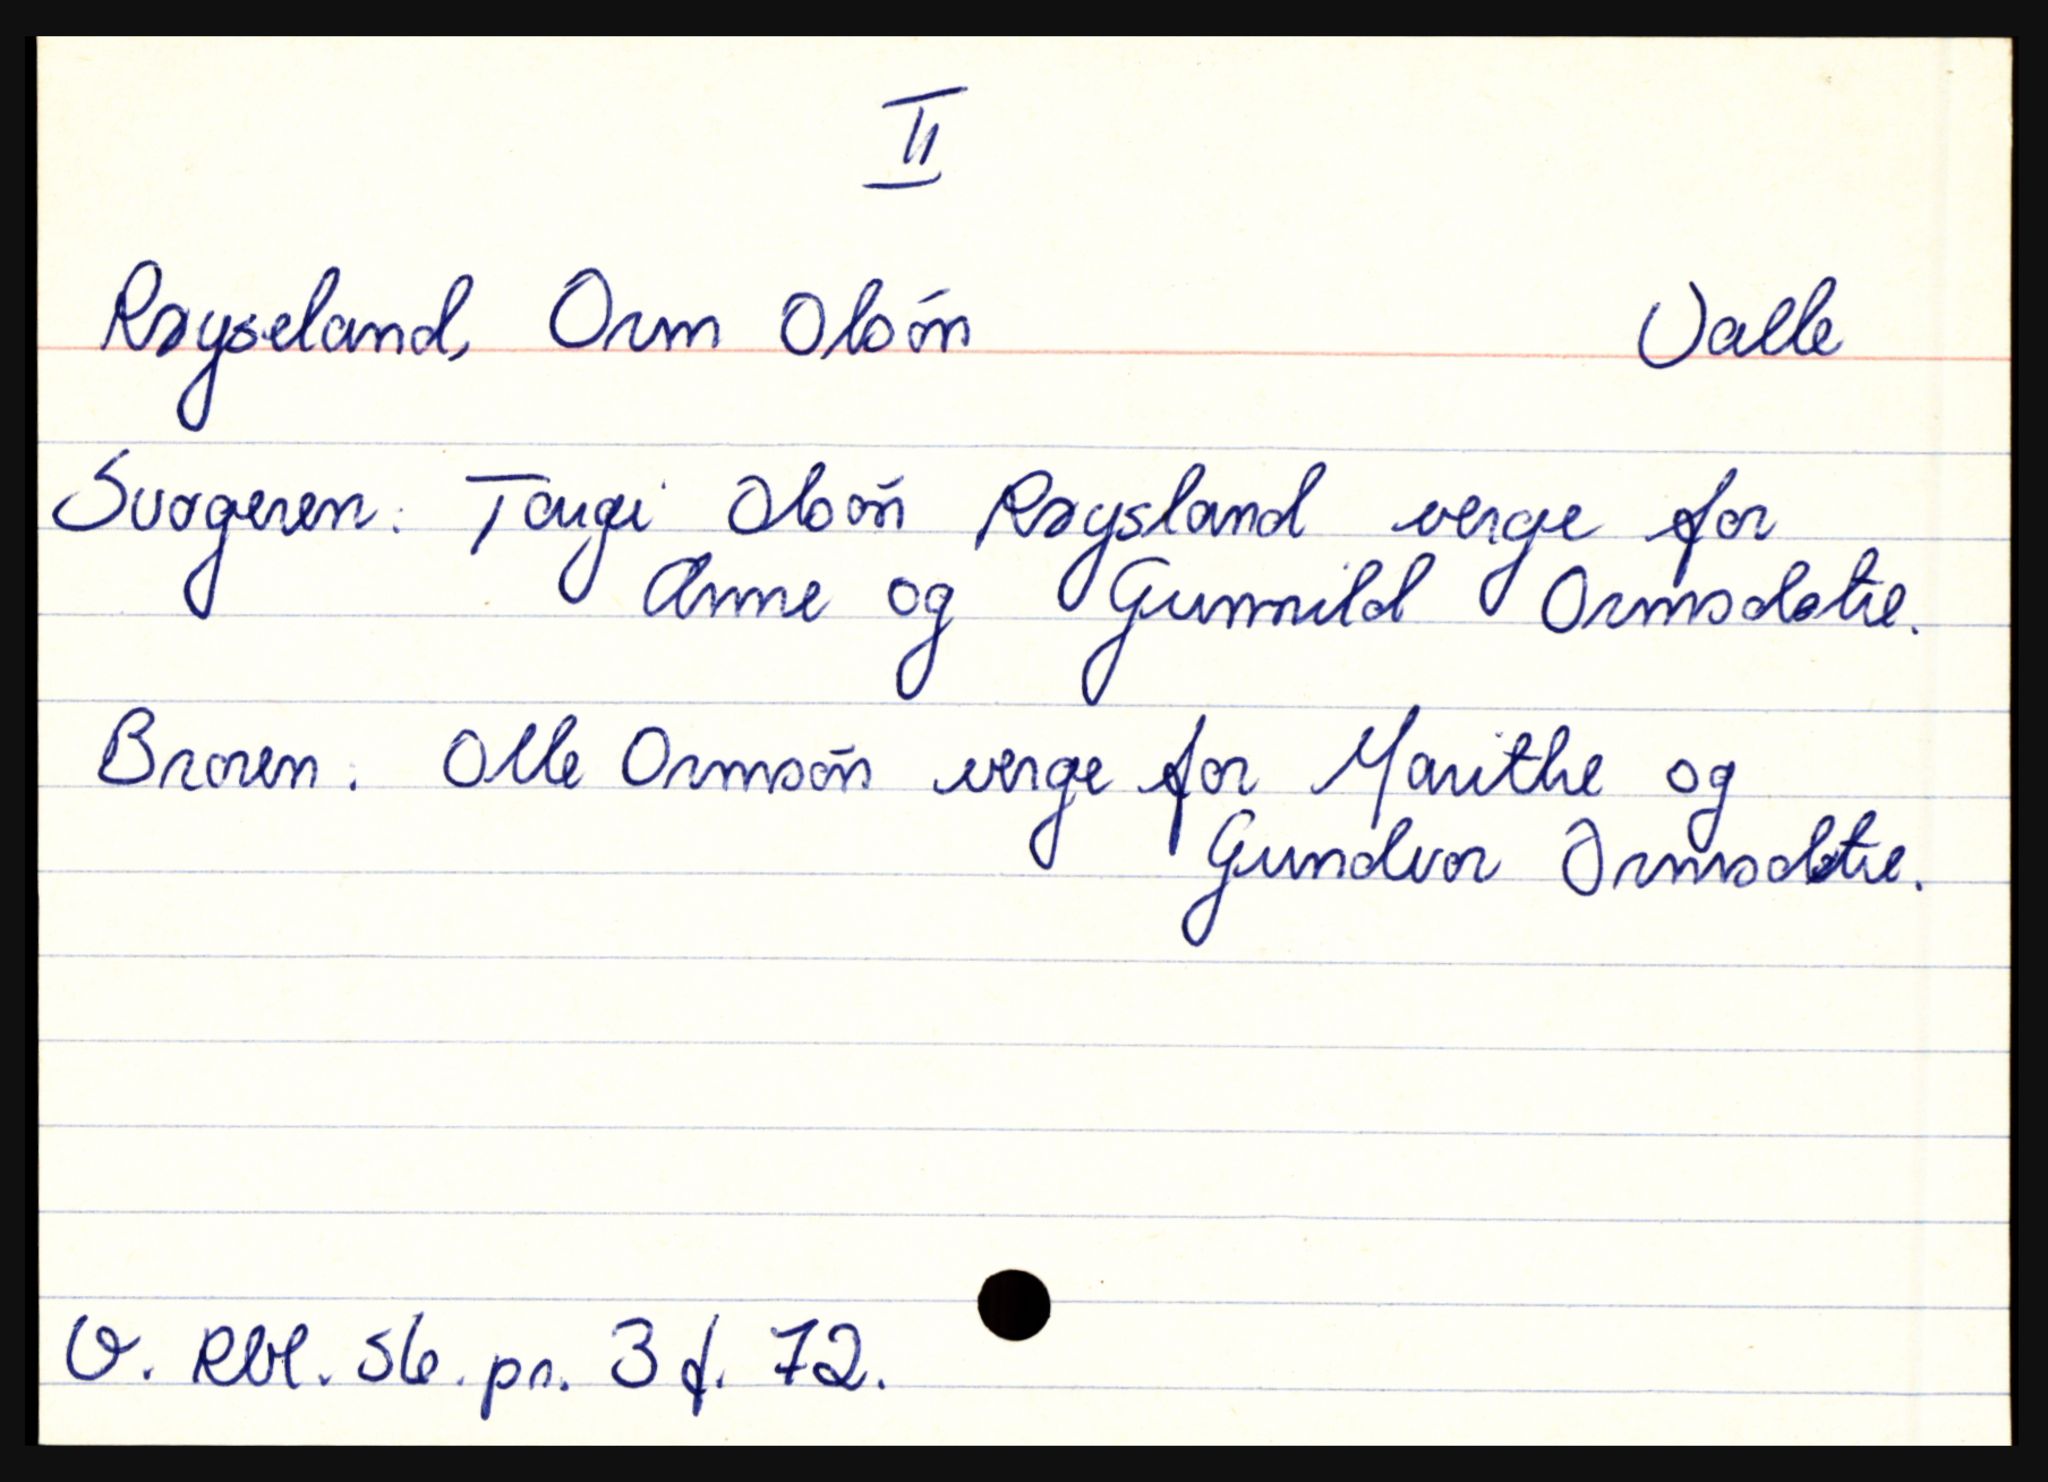 II
Røyseland, Orm Olsøn Valle
Svogeren: Targi Olsøn Røysland verge for
Anne og Gunnild Ormsdøtre.
Broren: Olle Ormsøn verge for Marithe og
Gundvor Ormsdøtre.
V. Rbl. Sk. pr. 3 f. 72.